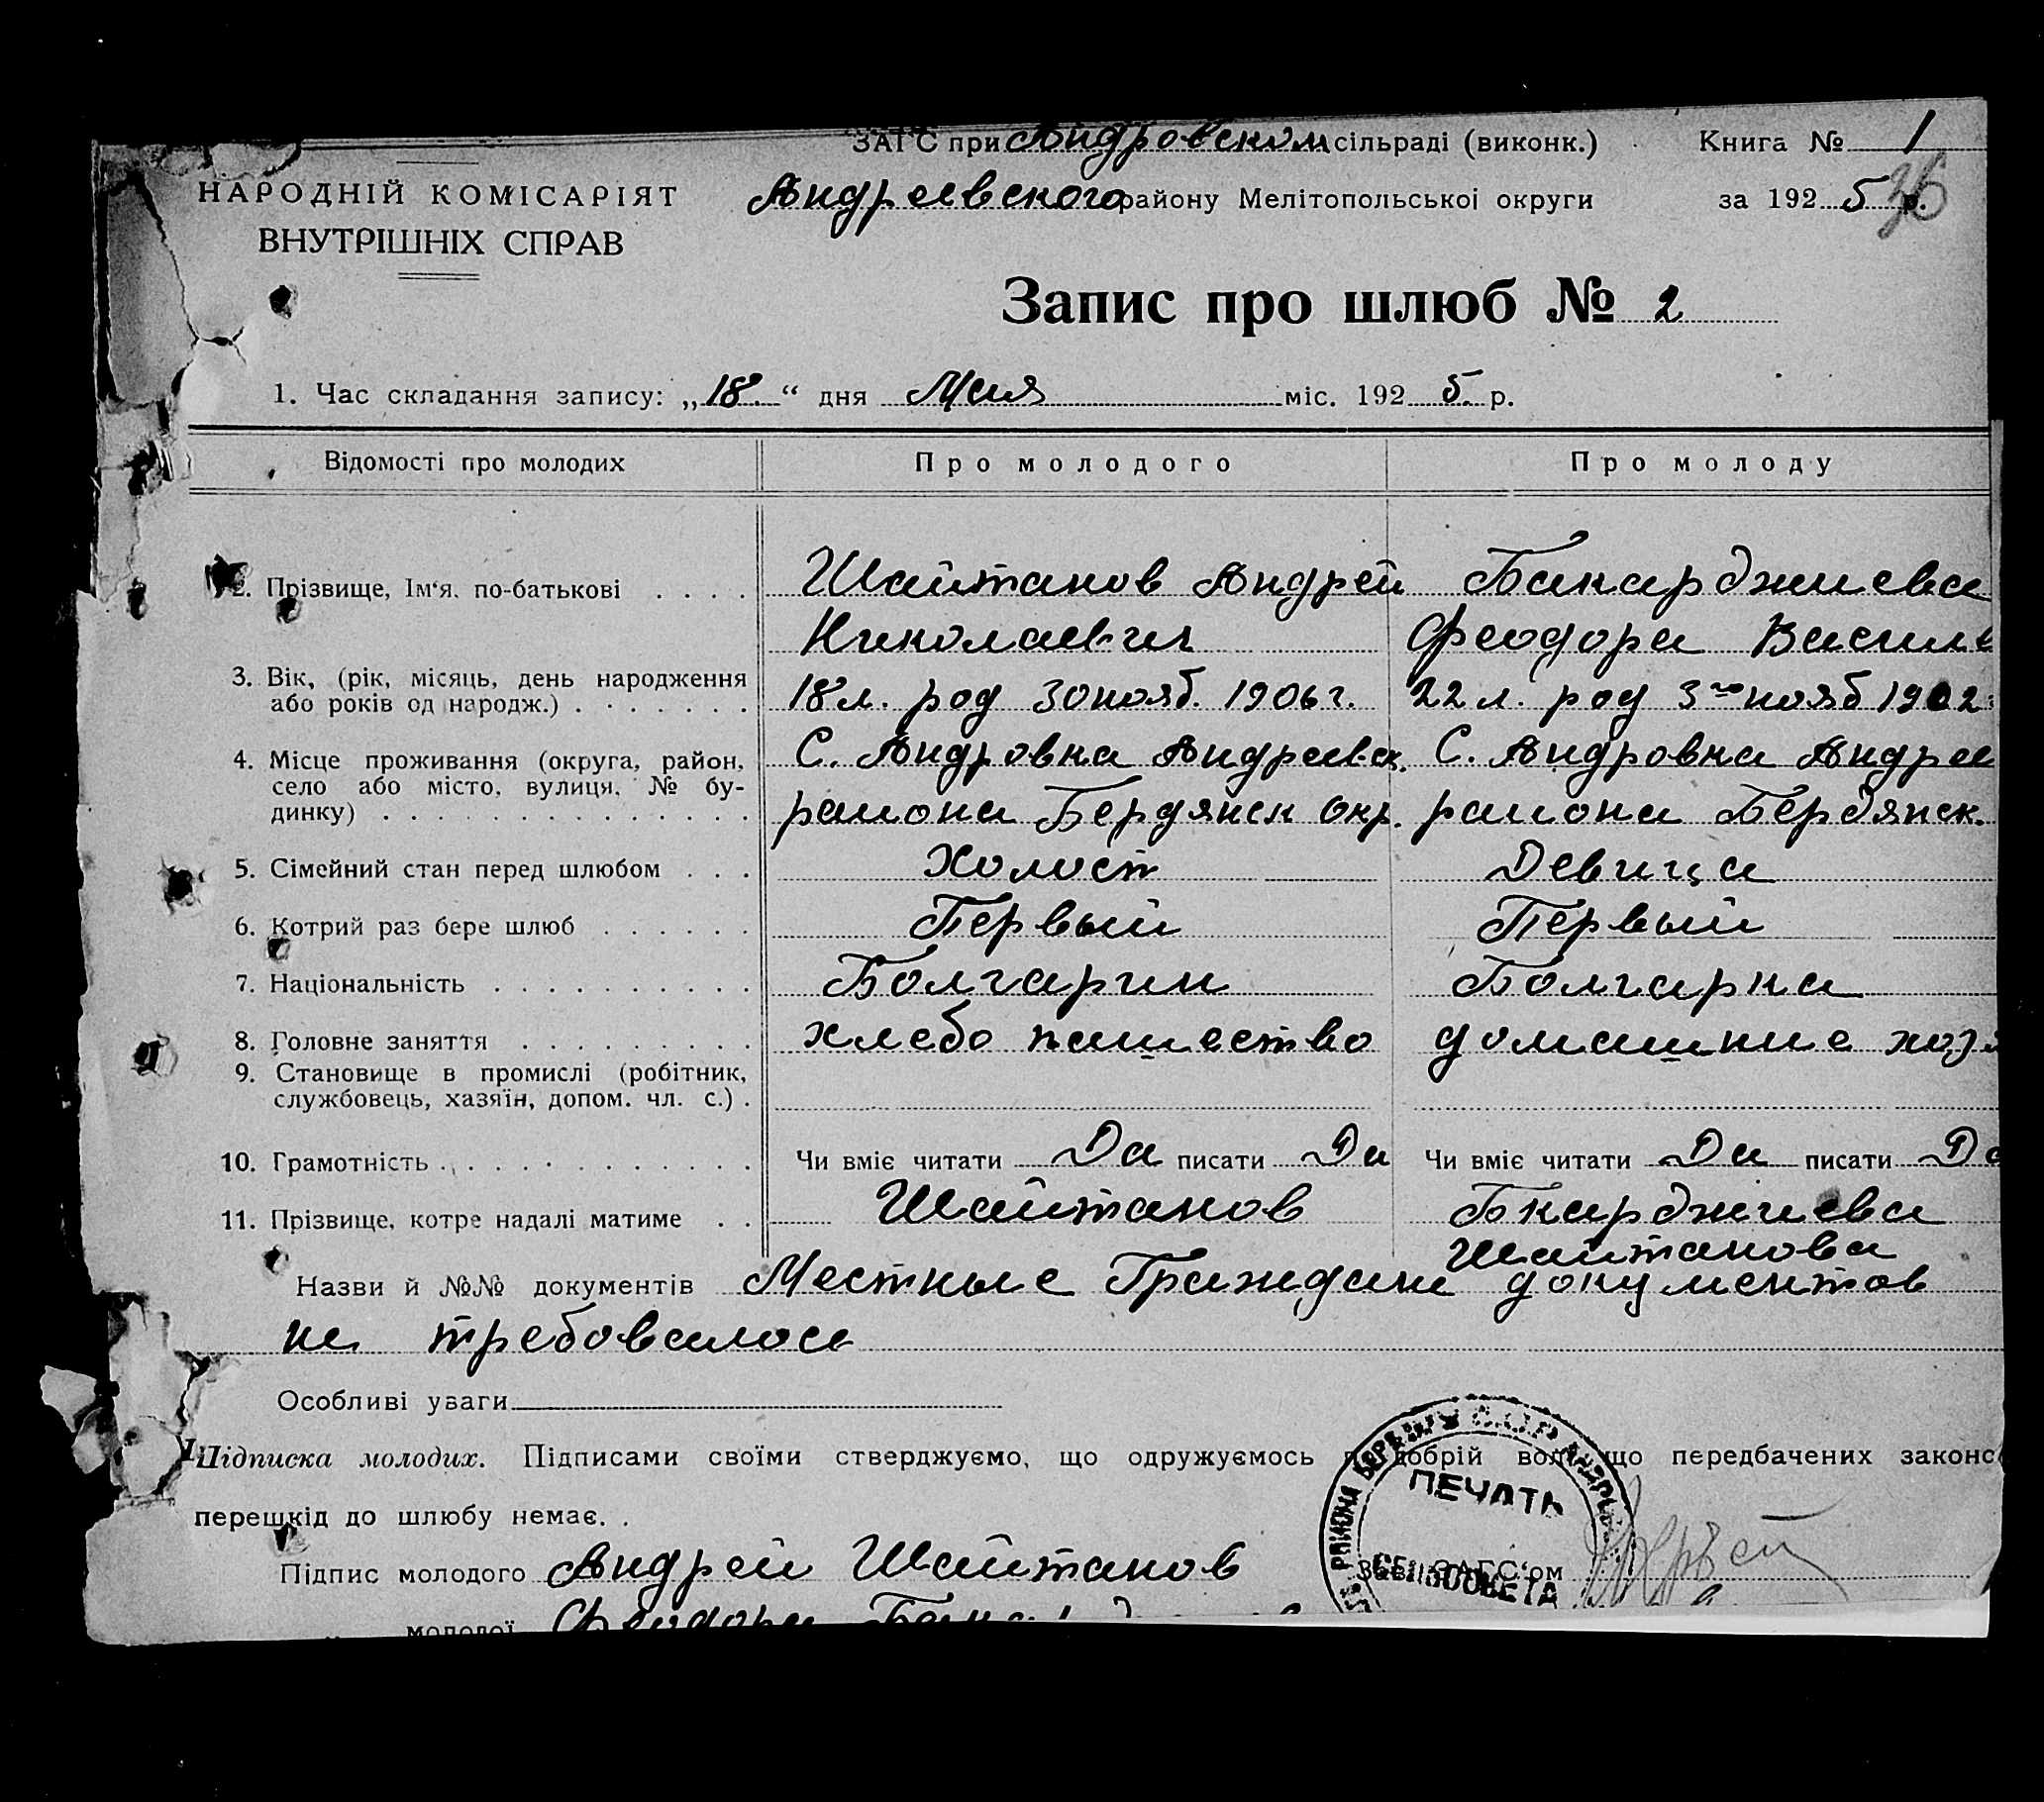 ЗАГС при Андровском сільраді (виконк.) Книга № 1
НАРОДНІЙ КОМІСАРІЯТ Андреевского району Мелітопольської округи за 1925 р. 36
ВНУТРІШНІХ СПРАВ
Запис про шлюб № 2
1. Час складання запису: „18“ дня Мая міс. 1925 р.
Відомості про молодих Про молодого Про молоду
2. Прізвище, Ім'я, по-батькові . . . . Шайтанов Андрей Бакарджиева
Николаевич Феодора Василь
3. Вік, (рік, місяць, день народження
або років од народж.) . . . . . . . 18 л. род 30 нояб. 1906 г. 22 л. род 3го нояб 1902
4. Місце проживання (округа, район, С. Андровка Андреевск. С. Андровка Андрее
село або місто, вулиця, № бу-
динку) . . . . . . . . . . . . . . района Бердянск окр. района Бердянск.
5. Сімейний стан перед шлюбом . . . Холост Девица
6. Котрий раз бере шлюб . . . . . . Первый Первый
7. Національність . . . . . . . . . . Болгарин Болгарка
8. Головне заняття . . . . . . . . . хлебо пашество домашние хозя
9. Становище в промислі (робітник,
службовець, хазяїн, допом. чл. с.) .
10. Грамотність . . . . . . . . . . . . Чи вміє читати Да писати Да Чи вміє читати Да писати Да
11. Прізвище, котре надалі матиме . . Шайтанов Бкарджиева
Шайтанова
Назви й №№ документів Местные Граждани документов
не требовалось
Особливі уваги
Підписка молодих. Підписами своїми стверджуємо, що одружуємось по добрій волі що передбачених законо
перешкід до шлюбу немає. .
ПЕЧАТЬ
Підпис молодого Андрей Шайтанов Зав. ЗАГС'ом
СЕЛЬСОВЕТА
молодої Феодора